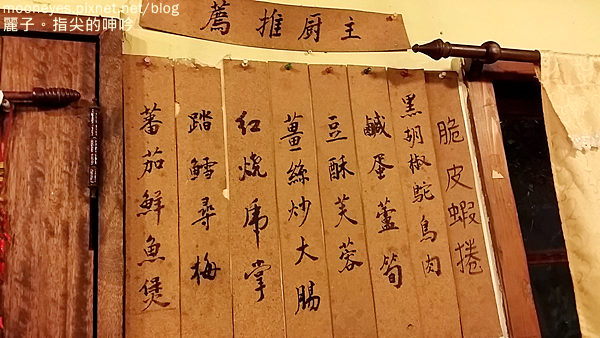 mooneyes.pixnet.net/blog
麗子。指尖的呻吟
主厨推薦
脆皮蝦捲
黑胡椒鴕鳥肉
鹹蛋蘆筍
豆酥芙蓉
薑絲炒大腸
红燒虎掌
踏鱈尋梅
蕃茄鮮魚煲